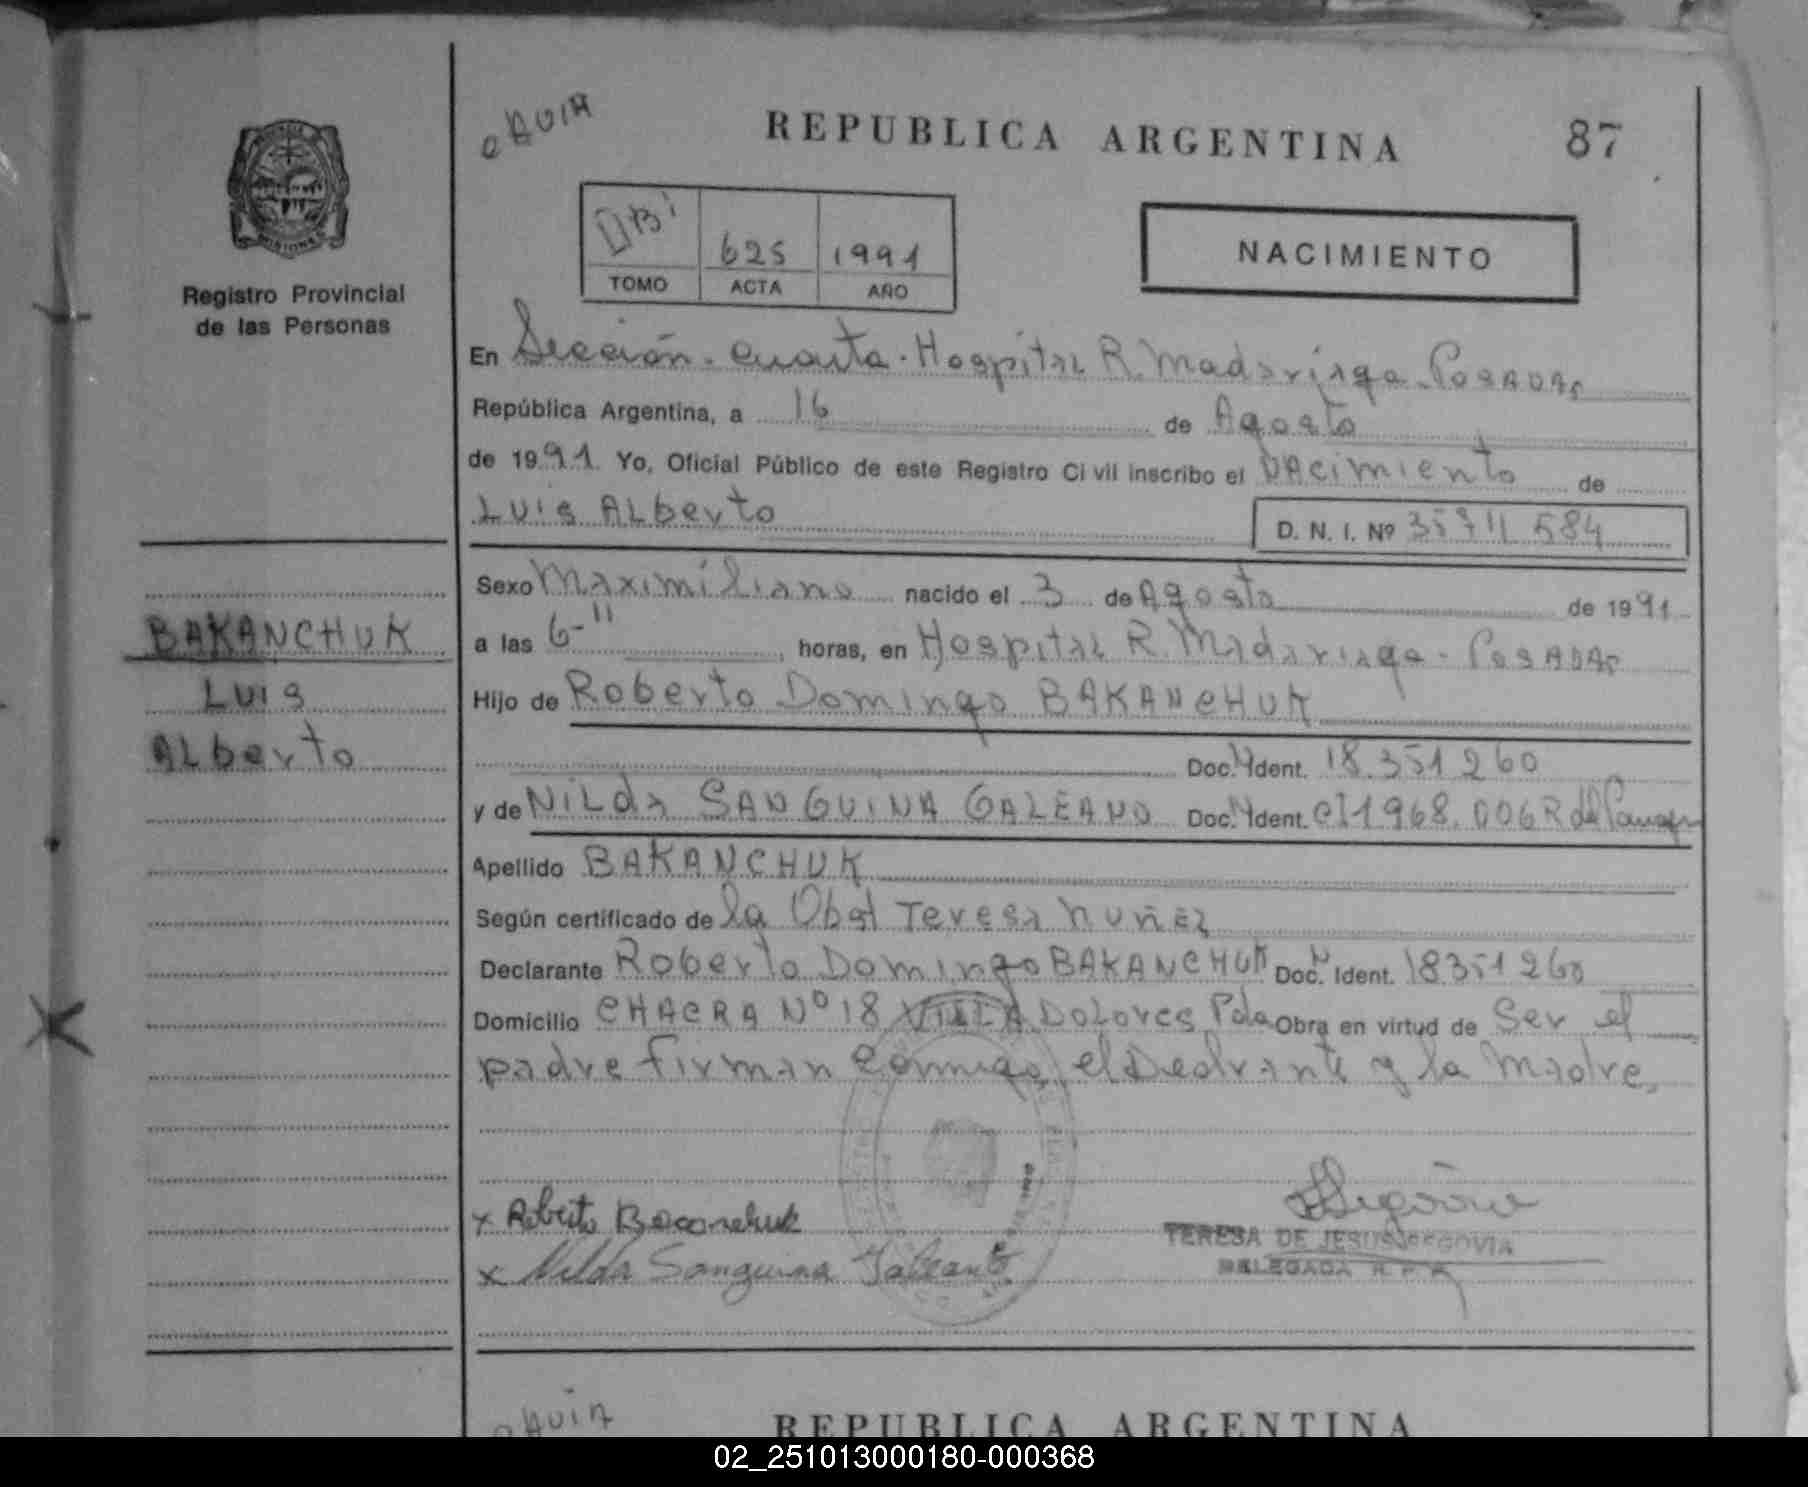 REPUBLICA ARGENTINA
87
625 1991
TOMO ACTA AÑO
NACIMIENTO
MISIONES
Registro Provincial
de las Personas
En Sección Cuarta. Hospital R. Madariaga. Posadas
República Argentina, a 16 de Agosto
de 1991. Yo, Oficial Público de este Registro Civil inscribo el nacimiento de
Luis Alberto
D. N. I. Nº 584
Sexo Maximiliano nacido el 3 de Agosto de 1991
a las 6-" horas, en Hospital R. Madariaga - Posadas
Hijo de Roberto Domingo BAKANCHUK
Doc. Ident. 18.351260
y de Nilda SANGUINA GALEANO Doc. Ident. CI 1968.006 R del
Apellido BAKANCHUK
Según certificado de la Obst Teresa Nuñez
Declarante Roberto Domingo BAKANCHUK Doc. Ident. 18351260
Domicilio CHACRA Nº 18 VILLA Dolores Pdas Obra en virtud de Ser el
padre firman conmigo el Declrante y la Madre.
BAKANCHUK
Luis
Alberto
x Roberto Bacanchuk
x Nilda Sanguina Galeano
TERESA DE JESUS SEGOVIA
DELEGADA R. P. P.
REPUBLICA ARGENTINA
02_251013000180-000368